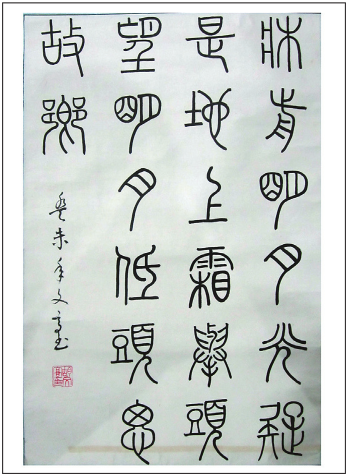 牀前明月光疑
是地上霜舉頭
望明月低頭思
故鄉
癸未年文